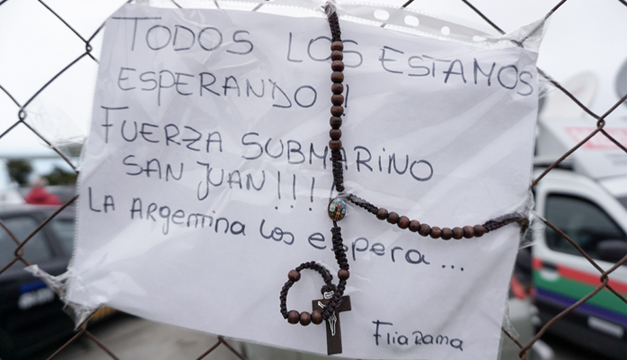 TODOS LOS ESTAMOS
ESPERANDO !!
FUERZA SUBMARINO
SAN JUAN!!!!
LA ARgEntina los espera...
Flia Rama